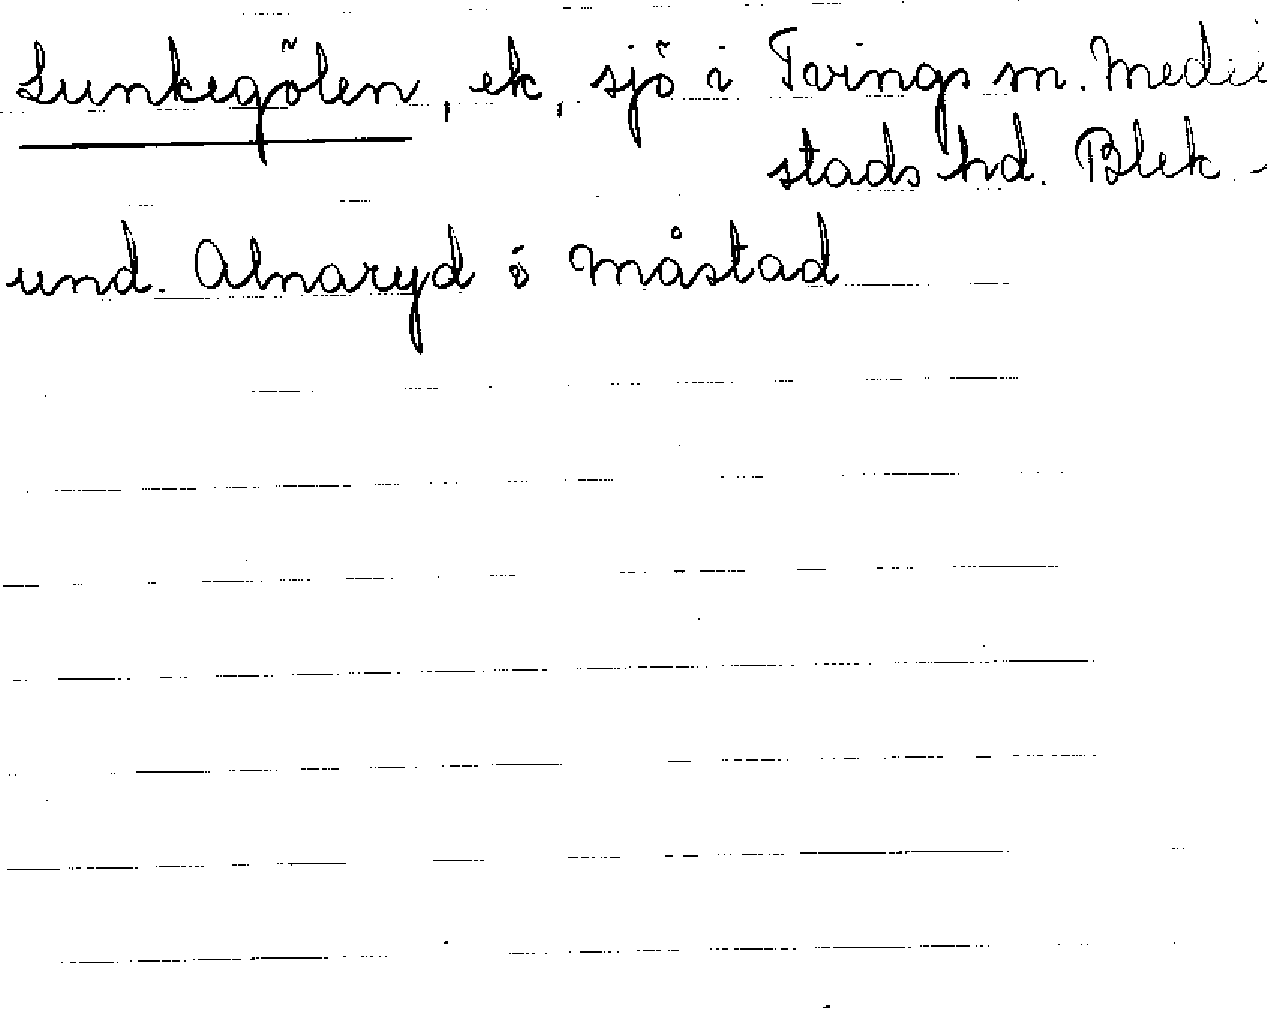 Lunkegölen, ek, sjö i Tvings sn. Medel
stads hd. Blek.
und. Alnaryd ö Måstad